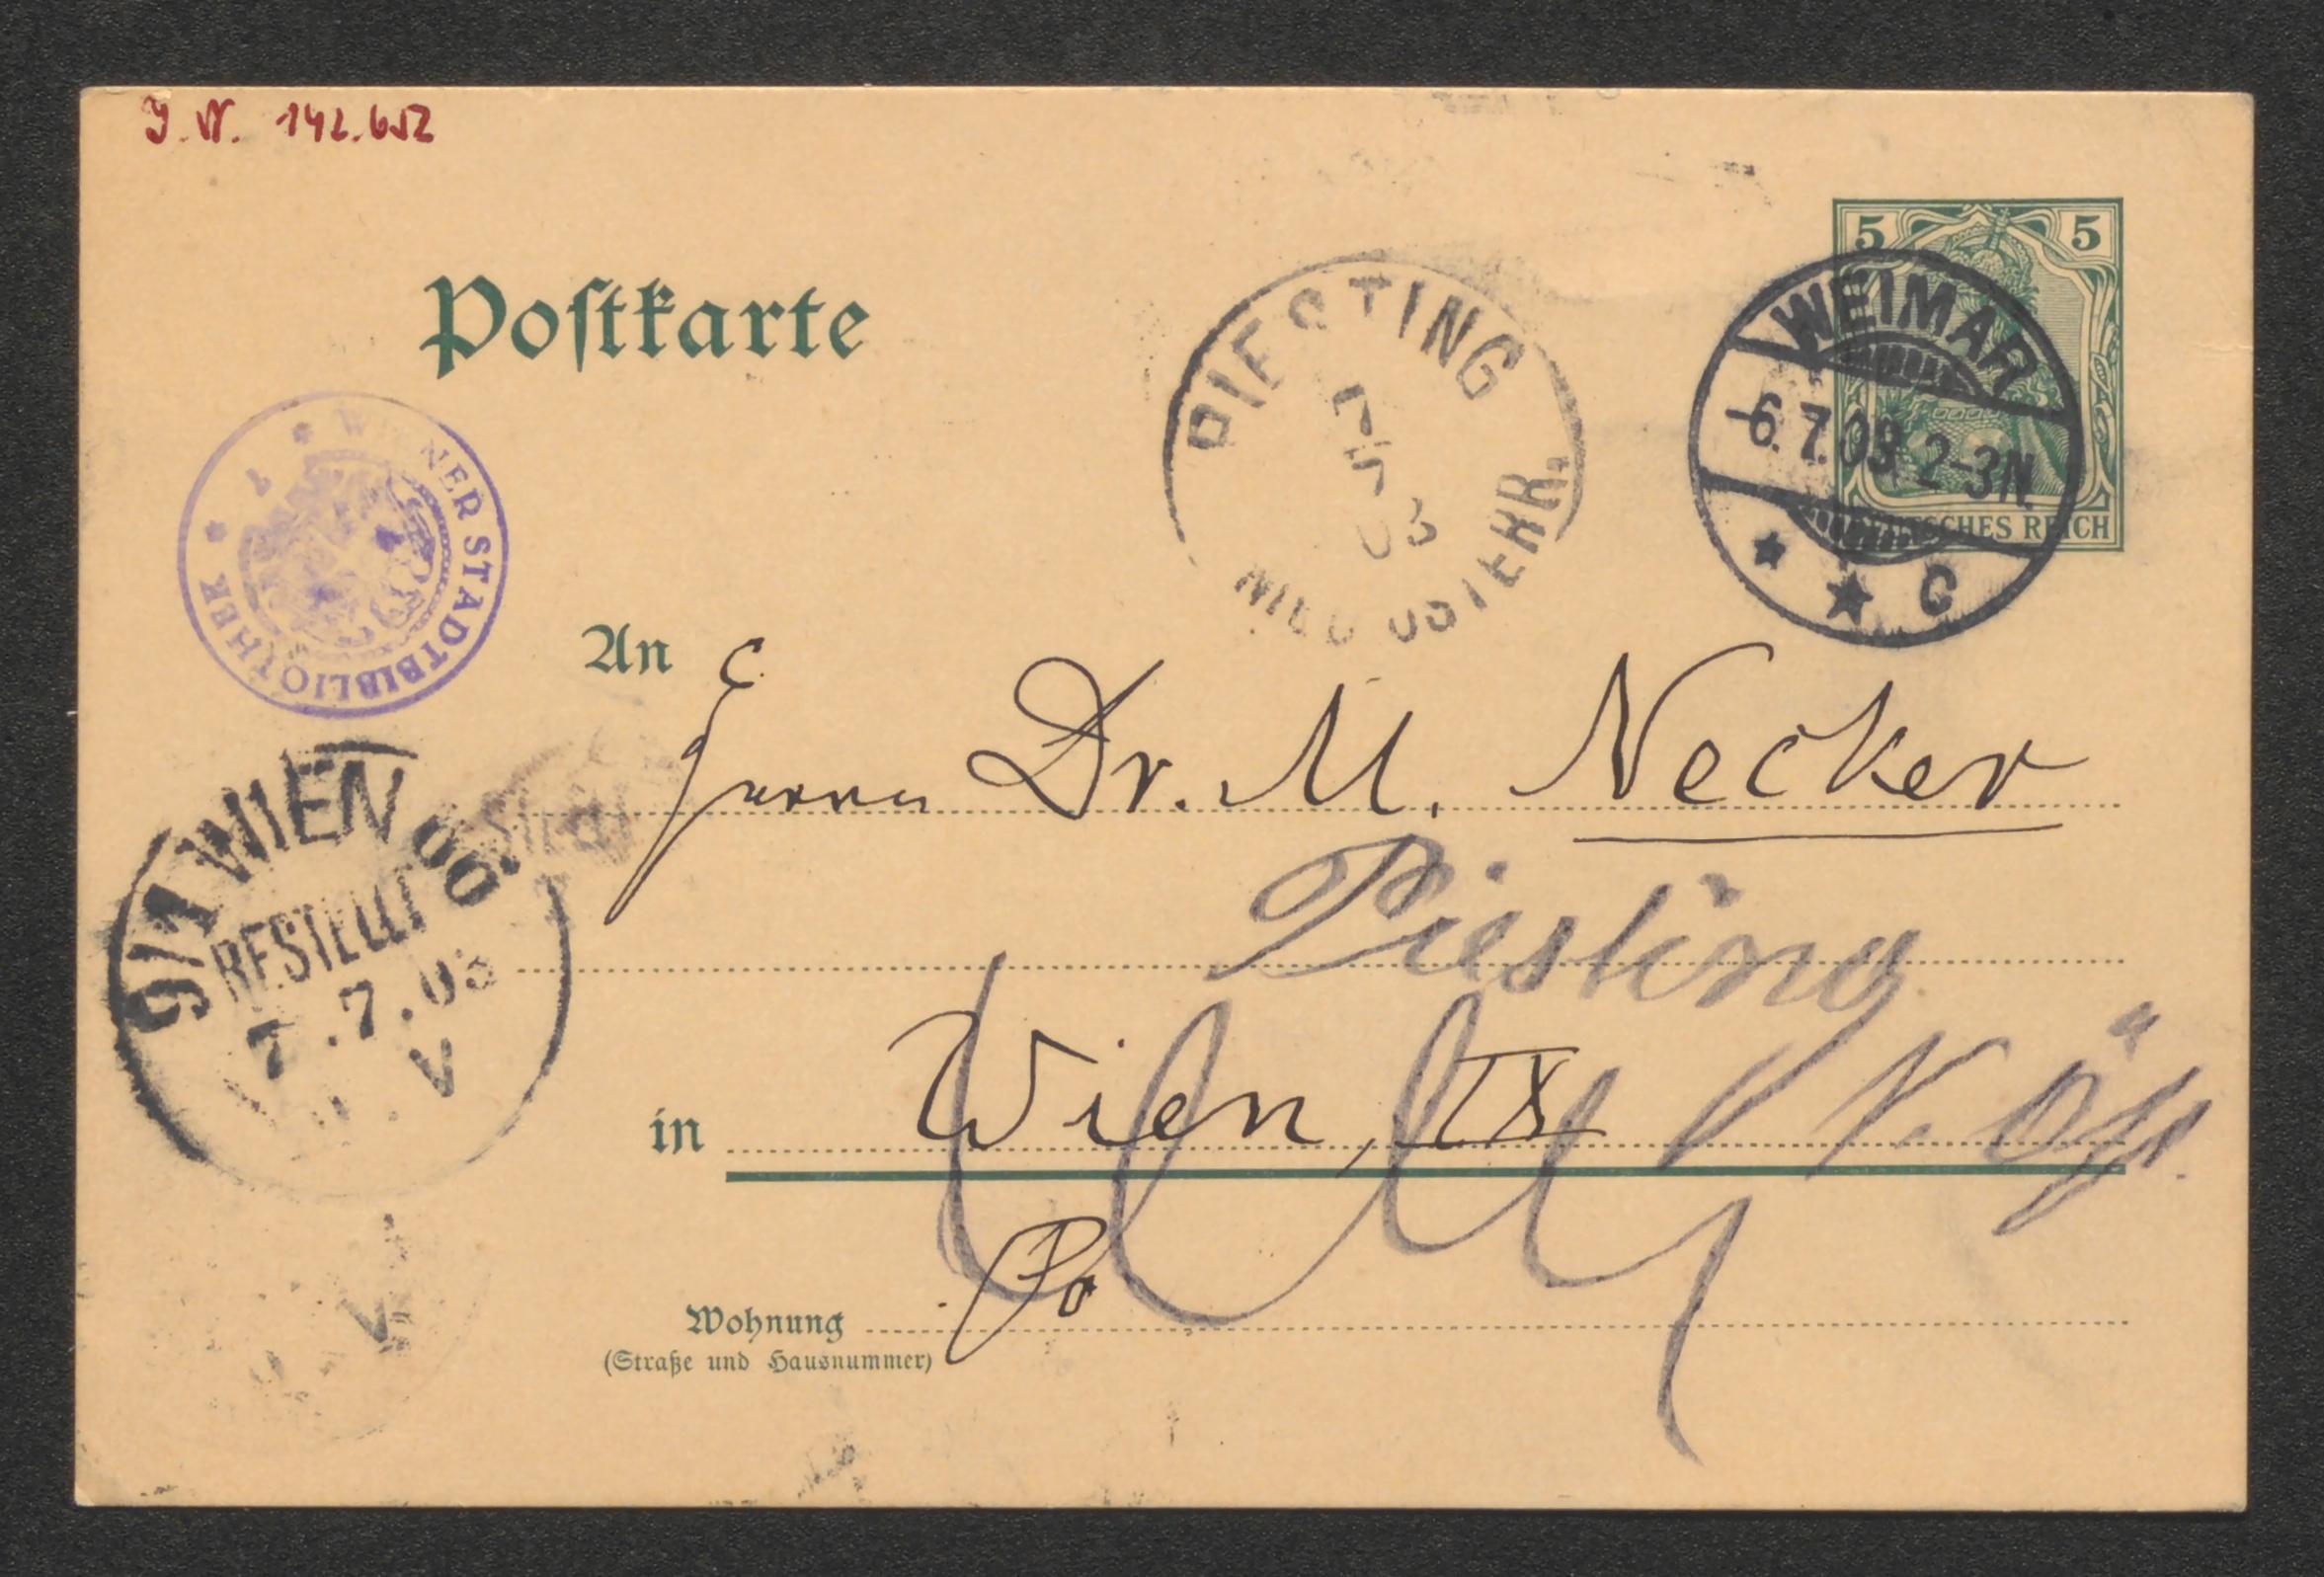 J. N. 142.652
Postkarte
5 5
DEUTSCHES REICH
WEIMAR
-6.7.03 2-3N
C
PIESTING
7 03
WIENER STADTBIBLIOTHEK
An
Herrn Dr. M. Necker
9/1 WIEN
BESTELLT
7.7.03
V
Piesting
N. Öst.
in Wien, IX
Wohnung
(Straße und Hausnummer)